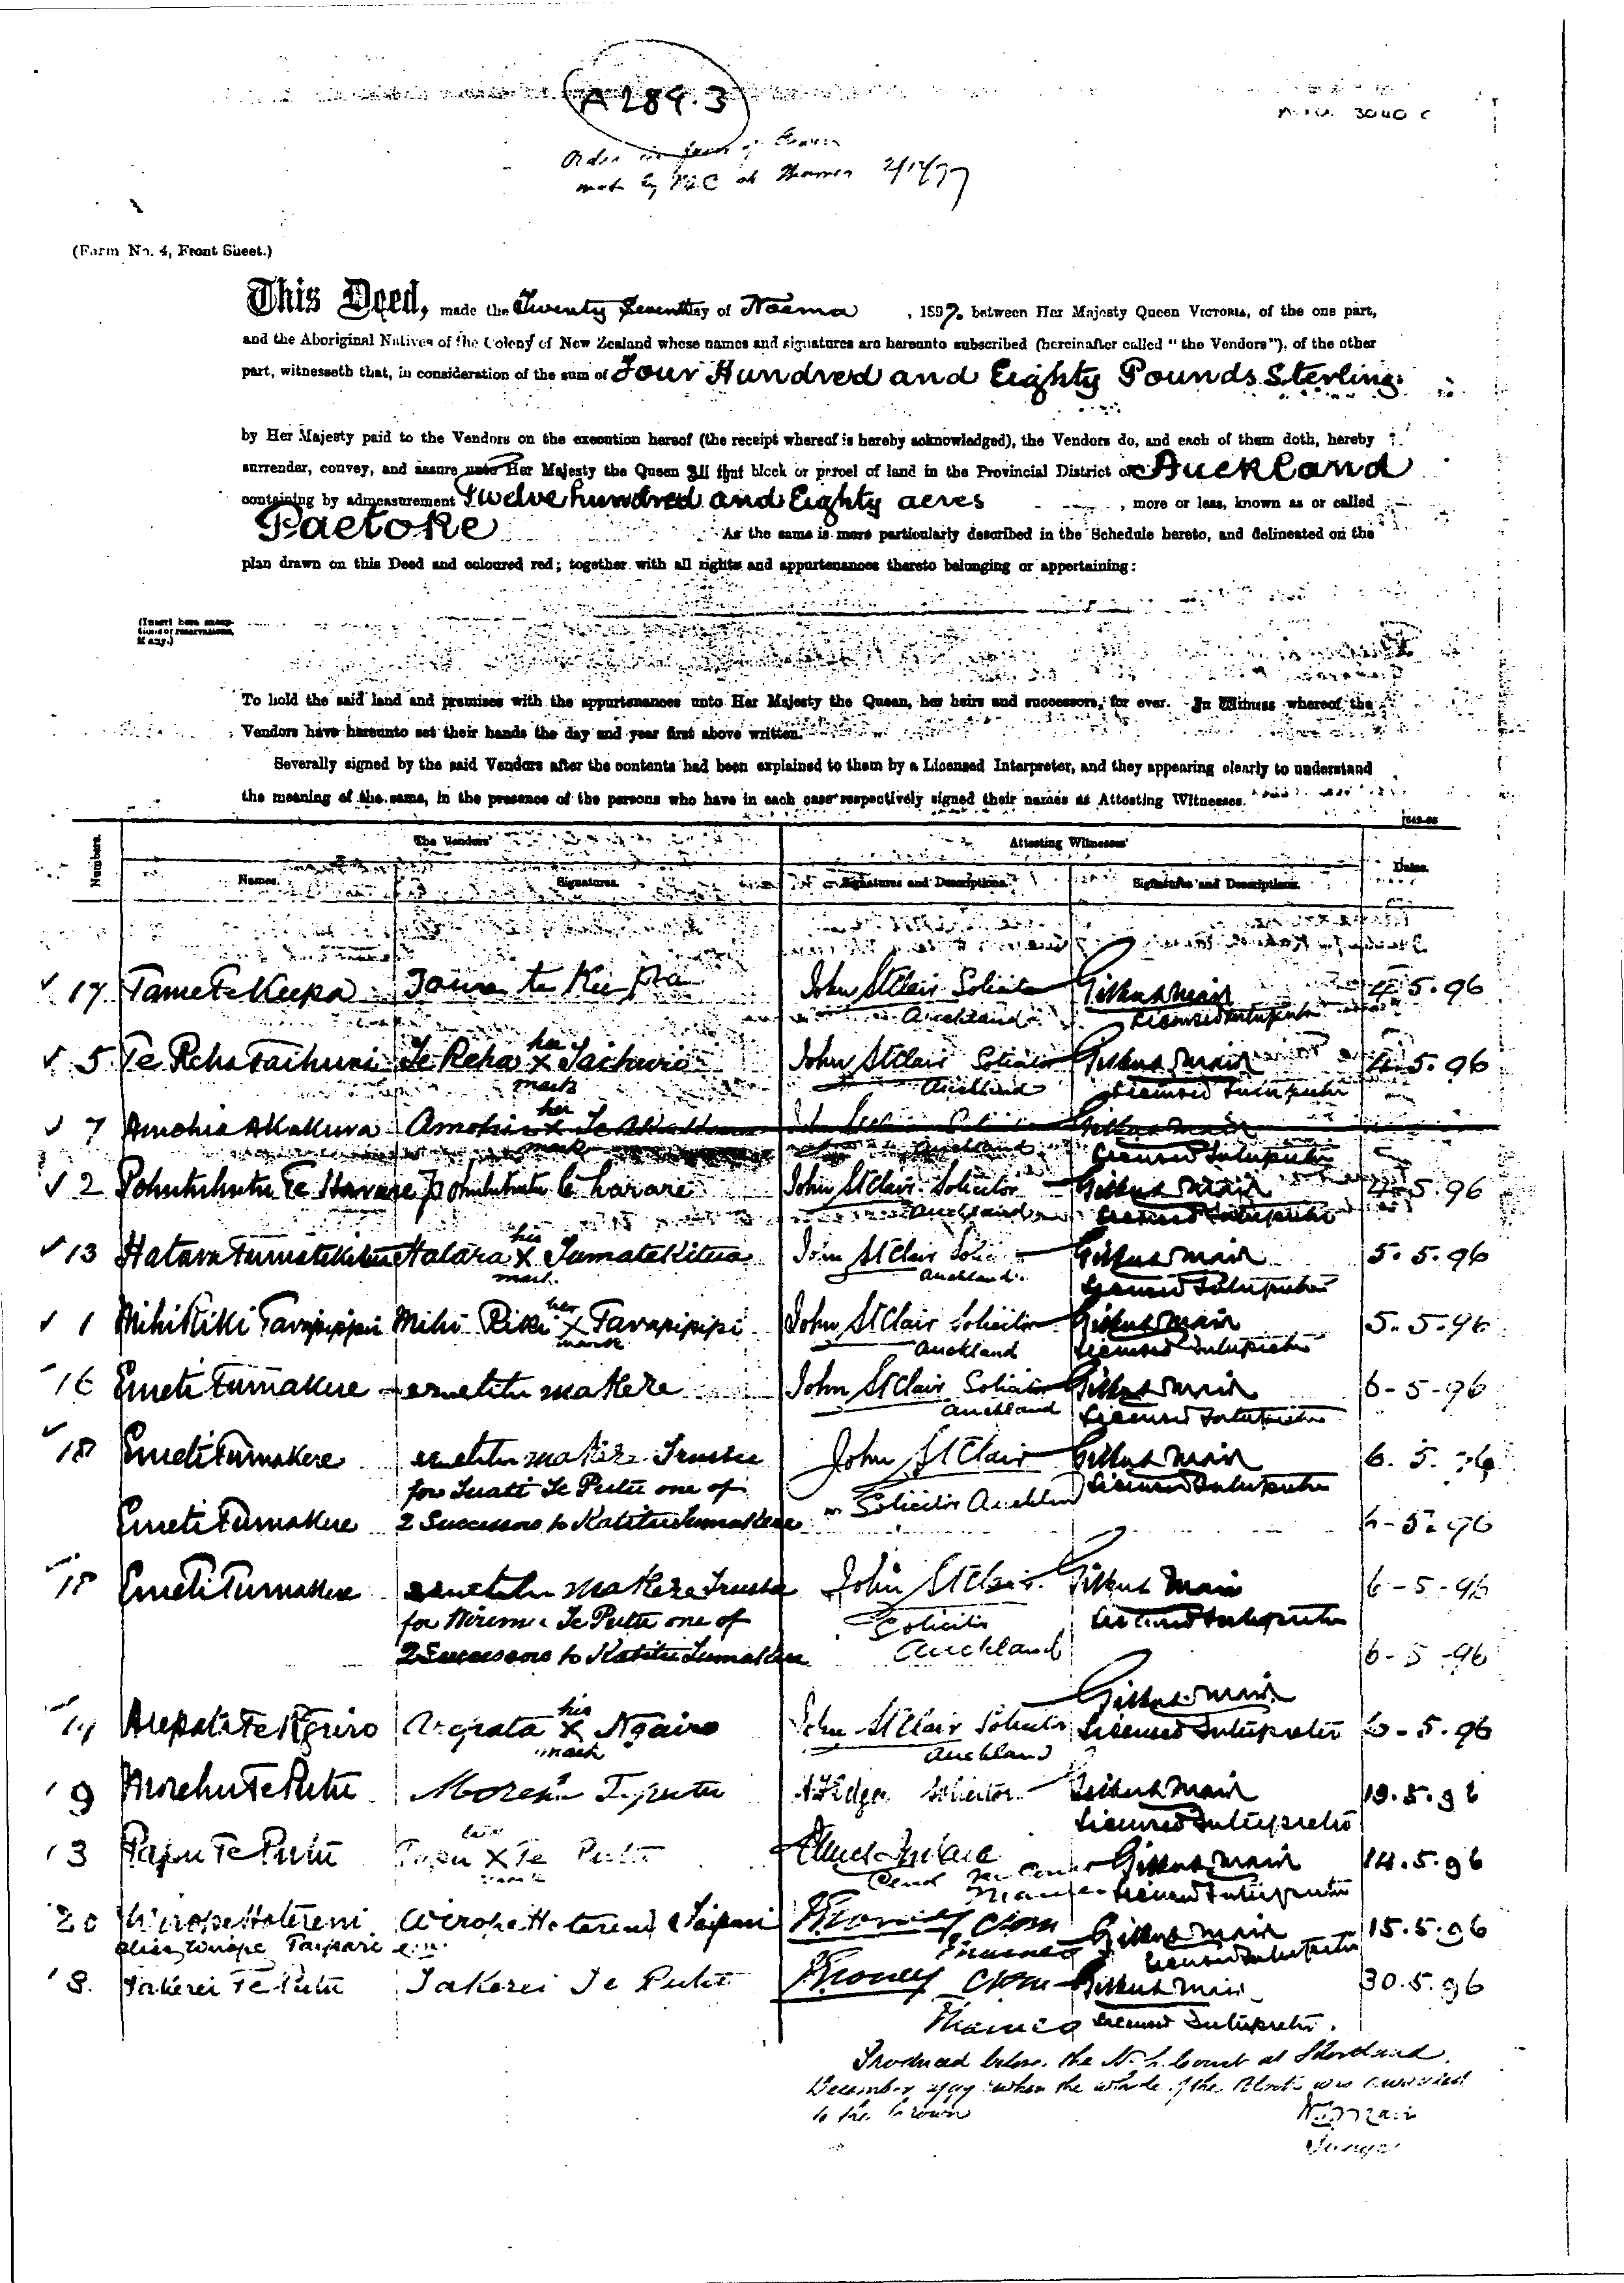 A 284.3
3040 C
Order in favor of Crown
made by NLC at Thames 2/12/97
(Form No. 4, Front Sheet.)
This Deed, made the Twenty Seventh day of , 1897. between Her Majesty Queen VICTORIA, of the one part,
and the Aboriginal Natives of the Colony of New Zealand whose names and signatures are hereunto subscribed (hereinafter called "the Vendors"), of the other
part, witnesseth that, in consideration of the sum of Four Hundred and Eighty Pounds Sterling
by Her Majesty paid to the Vendors on the execution hereof (the receipt whereof is hereby acknowledged), the Vendors do, and each of them doth, hereby
surrender, convey, and assure unto Her Majesty the Queen All that block or parcel of land in the Provincial District of Auckland
containing by admeasurement Twelve hundred and Eighty acres , more or less, known as or called
Paetoke As the same is more particularly described in the Schedule hereto, and delineated on the
plan drawn on this Deed and coloured red; together with all rights and appurtenances thereto belonging or appertaining:
(Insert here excep-
tions or reservations,
if any.)
To hold the said land and premises with the appurtenances unto Her Majesty the Queen, her heirs and successors, for ever. In Witness whereof the
Vendors have hereunto set their hands the day and year first above written.
Severally signed by the said Vendors after the contents had been explained to them by a Licensed Interpreter, and they appearing clearly to understand
the meaning of the same, in the presence of the persons who have in each case respectively signed their names as Attesting Witnesses.
Numbers. The Vendors' Attesting Witnesses' Dates.
Names. Signatures. Signatures and Descriptions. Signatures and Descriptions.
17 Tame Te Keepa John StClair Solicitor Gilbert Mair 4.5.96
Auckland Licensed Interpreter
her
5 Te Reha Taihuri Te Reha X Taihuria John StClair Solicitor Gilbert Mair 4.5.96
mark Auckland Licensed Interpreter
her
7 Amohia Akakura Amohia X Gilbert Mair
mark Auckland Licensed Interpreter
2 Pohutuhutu Te Harare Pohutuhutu te harare John StClair Solicitor Gilbert Mair 4.5.96
Auckland Licensed Interpreter
his
13 Hatara Tumatekitua Hatara X Tumatekitua John StClair Gilbert Mair 5.5.96
mark Auckland Licensed Interpreter
her
1 Mihi Riki Tarapipipi Mihi Riki X Tarapipipi John StClair Solicitor Gilbert Mair 5.5.96
mark Auckland Licensed Interpreter
16 Emeti Tumakere emetitu makere John StClair Solicitor Gilbert Mair 6-5-96
Auckland Licensed Interpreter
18 Emeti Tumakere emetitu makere Trustee John StClair Gilbert Mair 6.5.96
for Tuati Te Putu one of Solicitor Auckland Licensed Interpreter
Emeti Tumakere 2 Successors to Katitu Tumakere 6-5-96
18 Emeti Tumakere emetitu makere Trustee John StClair Gilbert Mair 6-5-96
for Te Putu one of Solicitor Licensed Interpreter
2 Successors to Katitu Tumakere Auckland 6-5-96
his Gilbert Mair
14 Arepata Te Ngairo Arepata X Ngairo John StClair Solicitor Licensed Interpreter 6-5.96
mark Auckland
9 Morehu Te Putu Gilbert Mair 19.5.96
Licensed Interpreter
3 Papu Te Putu Papu X Te Putu Gilbert Mair 14.5.96
mark Licensed Interpreter
20 Wirope Hotereni Wirope Hotereni Taipari Gilbert Mair 15.5.96
alias Wirope Taipari Thames Licensed Interpreter
8. Takerei Te Putu Takerei Te Putu Gilbert Mair 30.5.96
Thames Licensed Interpreter.
Produced before the N. L. Court at Shortland
December when the whole of the Block was awarded
to the Crown
Judge